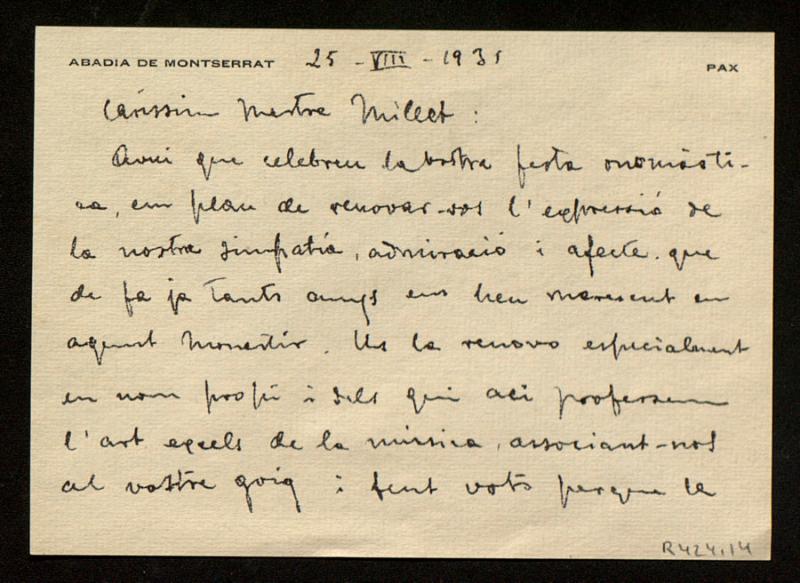 ABADIA DE MONTSERRAT 25 - VIII - 1931
PAX
Caríssim Mestre Millet :
Avui que celebreu la vostra festa onomàsti-
ca, em plau de renovar-vos l'expressió de
la nostra simpatia, admiració i afecte que
de fa ja tants anys ens heu merescut en
aquest Monestir. Us la renovo especialment
en nom propi i dels qui ací professem
l'art excels de la música, associant-nos
al vostre goig i fent vots perque la
R424,14